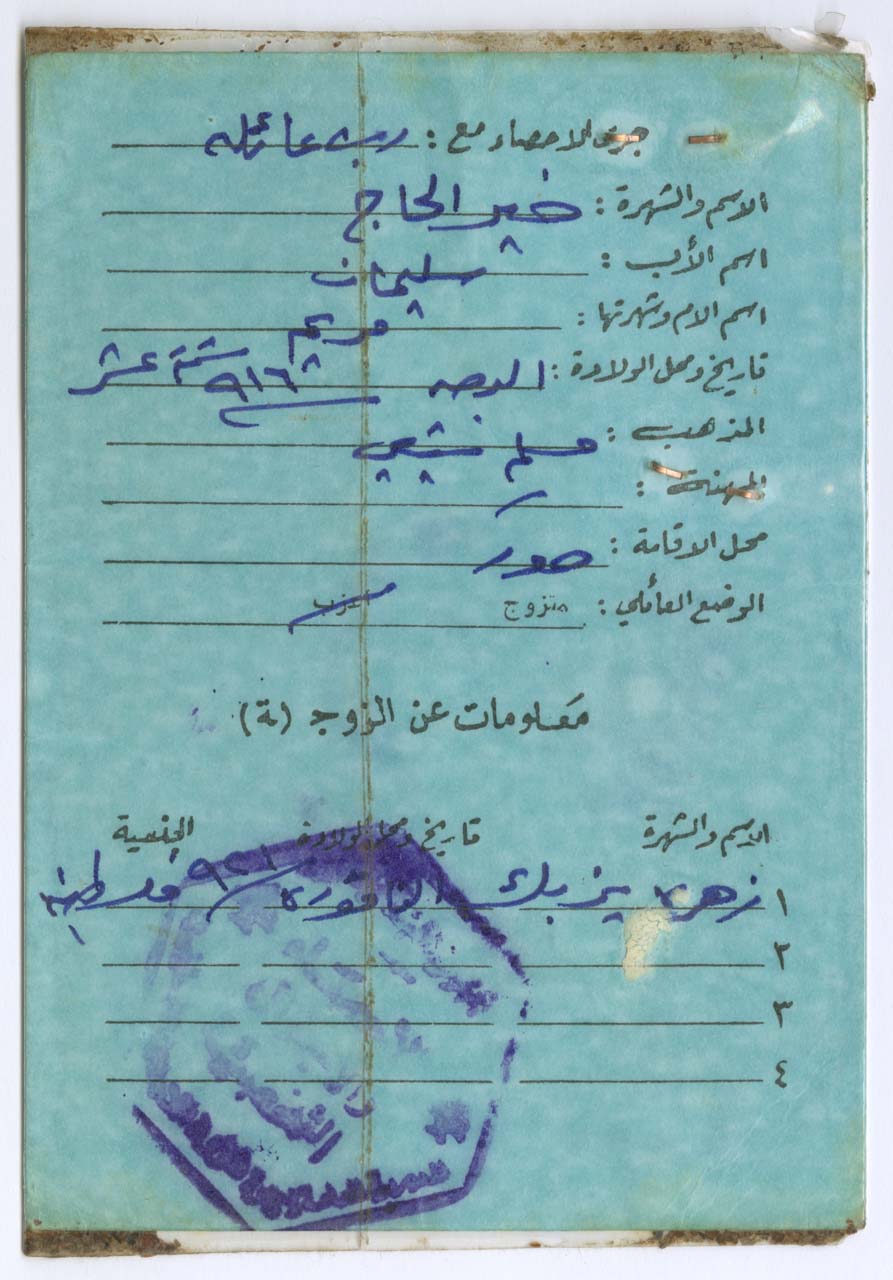 جرى الاحصاء مع : رب عائله
الاسم والشهرة : خضر الحاج
اسم الأب : سليمان
اسم الام وشهرتها : مريم
تاريخ ومحل الولادة : البصه ٩١٦ ستة عشر
المذهب : مسلم شيعي
المهنة : /
محل الاقامة : صور
الوضع العائلي : متزوج اعزب
معلومات عن الزوج (ة)
الاسم والشهرة تاريخ ومحل الولادة الجنسية
١ زهره يزبك الناقوره ٩٢١ فلسطينيه
٢
٣
٤